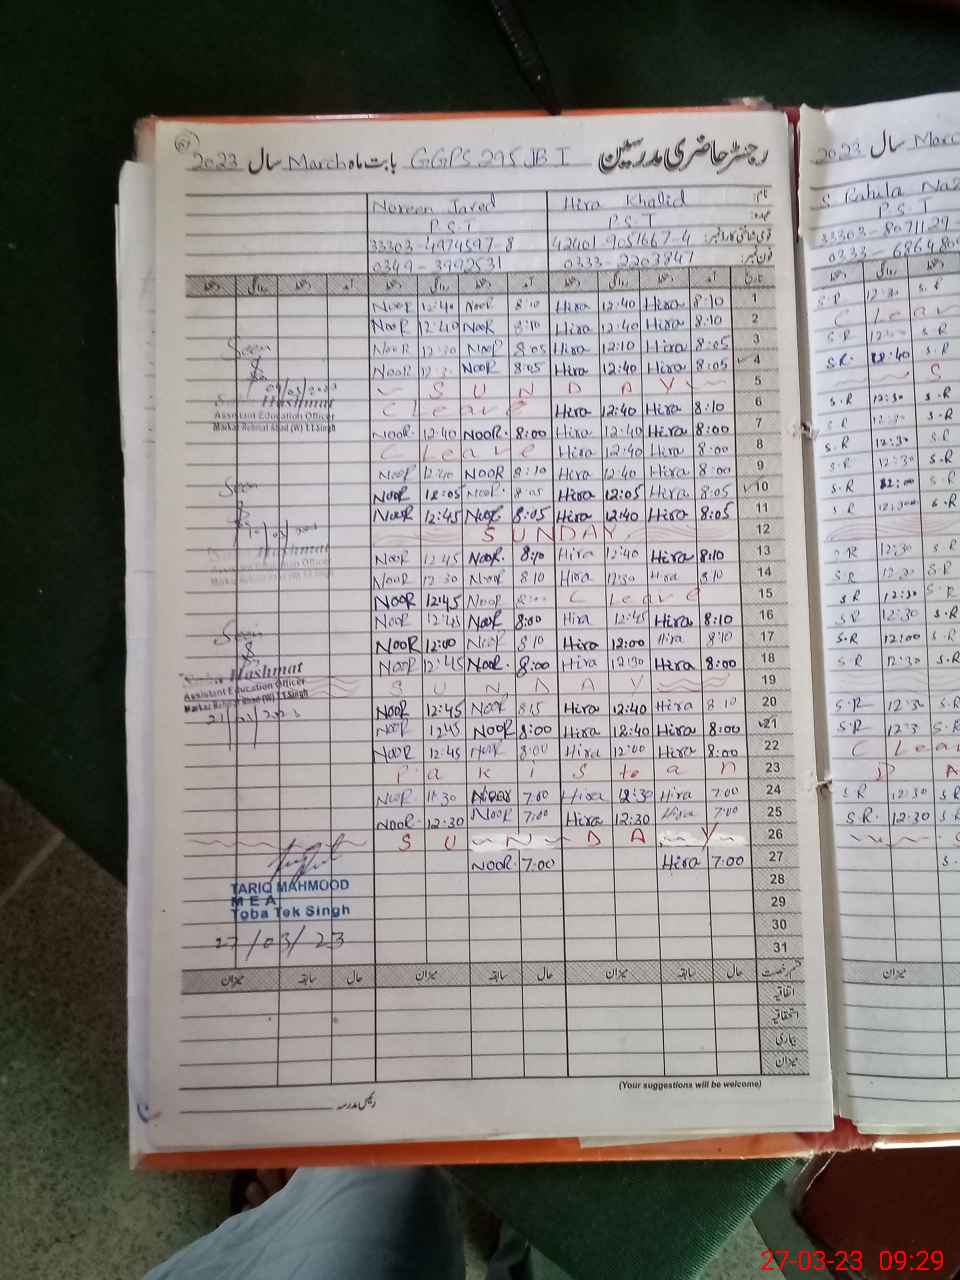 رجسٹر حاضری مدرسین GGPS 295 JB I بابت ماہ March سال 2023
نام: Hira Khalid Noreen Javed
عہدہ: P.S.T P.S.T
قومی شناختی کارڈ نمبر: 42401-9051667-4 33303-4974597-8
فون نمبر: 0333-2203847 0349-3992531
تاریخ آمد دستخط روانگی دستخط آمد دستخط روانگی دستخط آمد دستخط روانگی دستخط
NooR 12:40 NooR 8:10 Hira 12:40 Hira 8:10 1
NooR 12:40 NooR 8:10 Hira 12:40 Hira 8:10 2
NooR 12:30 NooR 8:05 Hira 12:10 Hira 8:05 3
NooR NooR 8:05 Hira 12:40 Hira 8:05 4
SUNDAY 5
C Leave Hira 12:40 Hira 8:10 6
NooR. 12:40 NOOR. 8:00 Hira 12:40 Hira 8:00 7
C Leave Hira 12:40 Hira 8:00 8
NooR 12:40 NOOR 8:10 Hira 12:40 Hira 8:00 9
NooR 12:05 NooR. 8:05 Hira 12:05 Hira 8:05 10
NooR 12:45 NooR 8:05 Hira 12:40 Hira 8:05 11
SUNDAY 12
NooR 12:45 NooR. 8:10 Hira 12:40 Hira 8:10 13
NooR 12:30 NooR 8:10 Hira 12:30 Hira 8:10 14
NooR 12:45 NooR 8:00 C Leave 15
NooR 12:45 NooR 8:00 Hira 12:45 Hira 8:10 16
NooR 12:00 NooR 8:10 Hira 12:00 Hira 8:10 17
NooR 12:45 NooR. 8:00 Hira 12:30 Hira 8:00 18
SUNDAY 19
NooR 12:45 NooR 8:15 Hira 12:40 Hira 8:10 20
NooR 12:45 NooR 8:00 Hira 12:40 Hira 8:00 21
NooR 12:45 NooR 8:00 Hira 12:00 Hira 8:00 22
Pakistan 23
NooR. 11:30 Noor 7:00 Hira 12:30 Hira 7:00 24
NooR. 12:30 NooR 7:00 Hira 12:30 Hira 7:00 25
SUNDAY 26
NOOR. 7:00 Hira 7:00 27
28
29
30
31
Seen
Hashmat
Assistant Education Officer
Markaz Rehmat Abad (W) T.T.Singh
Seen
Hashmat
Assistant Education Officer
Seen
Hashmat
Assistant Education Officer
Markaz Rehmat Abad (W) T.T.Singh
21/03/2023
TARIQ MAHMOOD
M E A
Toba Tek Singh
27/03/23
قسم رخصت حال سابقہ میزان حال سابقہ میزان حال سابقہ میزان
اتفاقیہ
استحقاقیہ
بیماری
میزان
(Your suggestions will be welcome)
رئیس مدرسہ
2023 سال
P S T
33303-8071129
S.R 12:30 S.R
C Leav
S.R
S.R. S.R
S
S.R 12:30 S.R
S.R 12:30 S.R
S.R 12:30 S.R
S.R 12:30 S.R
S.R S.R
S.R S.R
S.R 12:30 S.R
S.R S.R
S.R 12:30 S.R
S.R 12:30 S.R
S.R 12:00 S.R
S.R 12:30 S.R
S.R S.R
S.R S.R
C Leav
P A
S.R 12:30 S.R
S.R. 12:30 S.R
S.
میزان
27-03-23 09:29